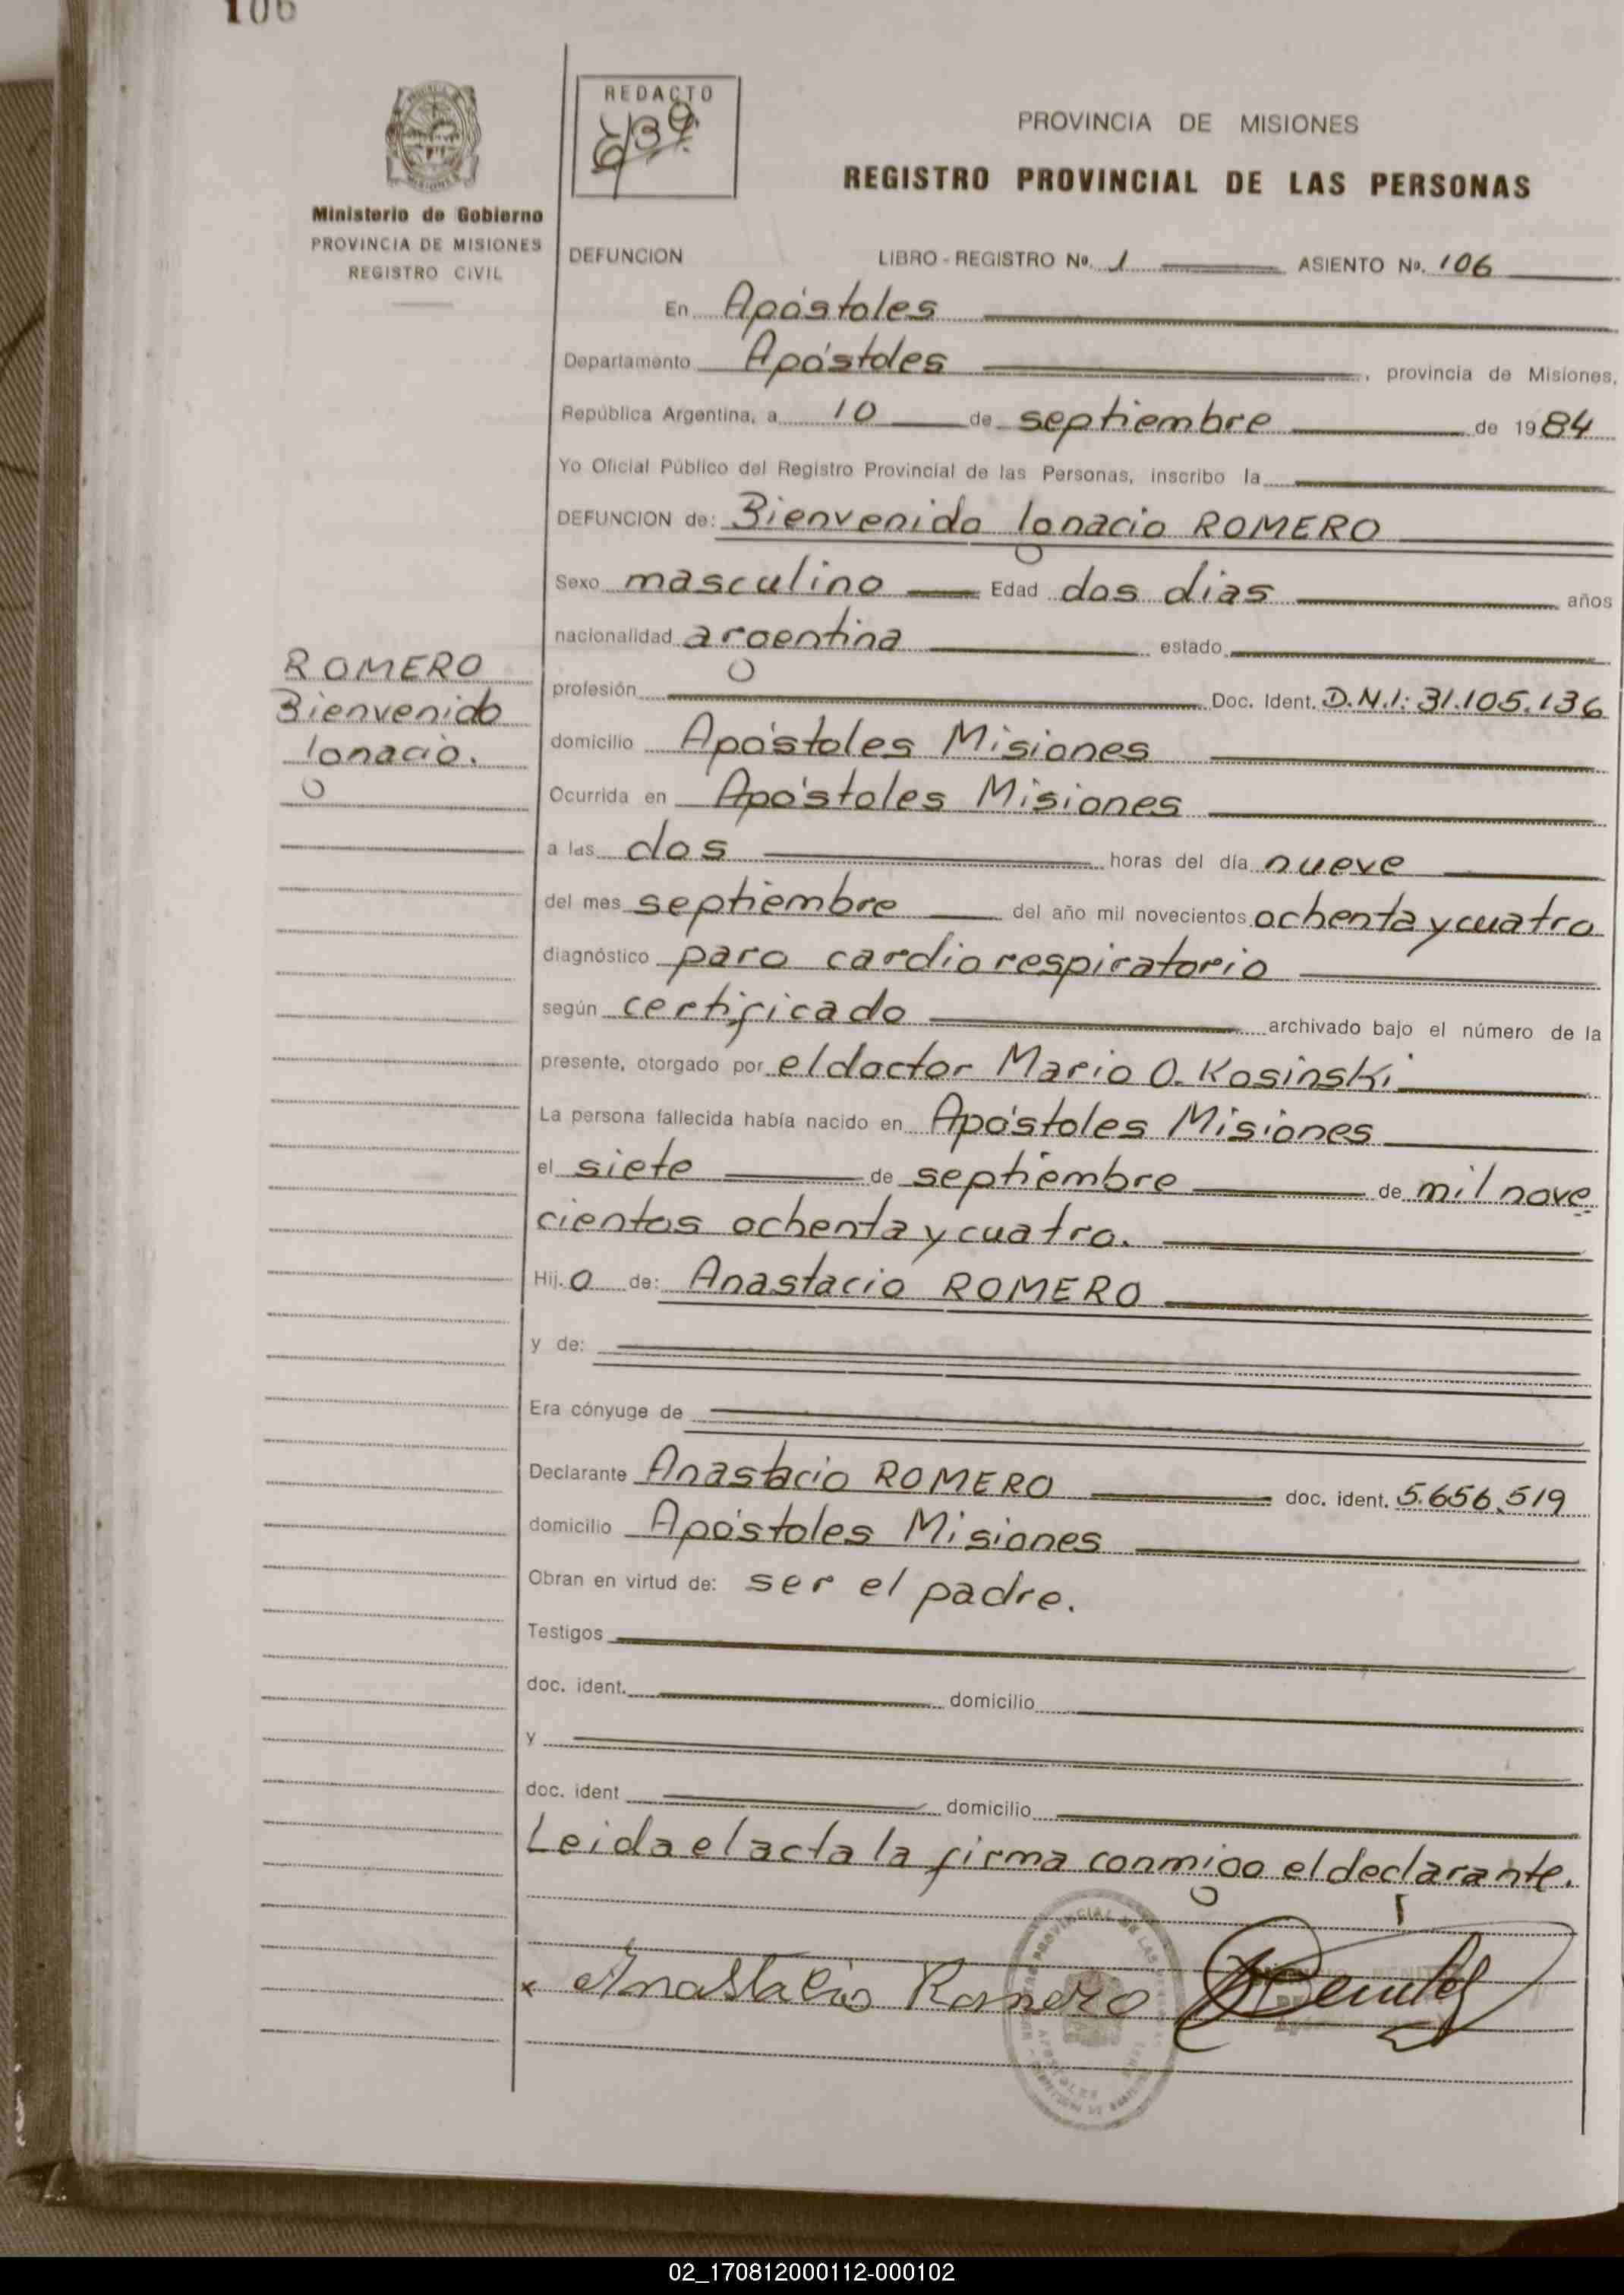 106
REDACTO
PROVINCIA DE MISIONES
REGISTRO PROVINCIAL DE LAS PERSONAS
Ministerio de Gobierno
PROVINCIA DE MISIONES
REGISTRO CIVIL
DEFUNCION LIBRO - REGISTRO Nº. 1 ASIENTO Nº. 106
En Apóstoles
Departamento Apóstoles, provincia de Misiones,
República Argentina, a 10 de septiembre de 1984
Yo Oficial Público del Registro Provincial de las Personas, inscribo la
DEFUNCION de: Bienvenido Ignacio ROMERO
Sexo masculino Edad dos dias años
nacionalidad argentina estado
profesión Doc. Ident. D.N.I: 31.105.136
ROMERO
Bienvenido
Ignacio.
domicilio Apóstoles Misiones
Ocurrida en Apóstoles Misiones
a las dos horas del día nueve
del mes septiembre del año mil novecientos ochenta y cuatro
diagnóstico paro cardiorespiratorio
según certificado archivado bajo el número de la
presente, otorgado por el doctor Mario O. Kosinski
La persona fallecida había nacido en Apóstoles Misiones
el siete de septiembre de mil nove
cientos ochenta y cuatro.
Hijo de: Anastacio ROMERO
y de:
Era cónyuge de
Declarante Anastacio ROMERO doc. ident. 5.656.519
domicilio Apóstoles Misiones
Obran en virtud de: ser el padre.
Testigos
doc. ident. domicilio
y
doc. ident domicilio
Leida el acta la firma conmigo el declarante.
x Anastacio Romero
02_170812000112-000102